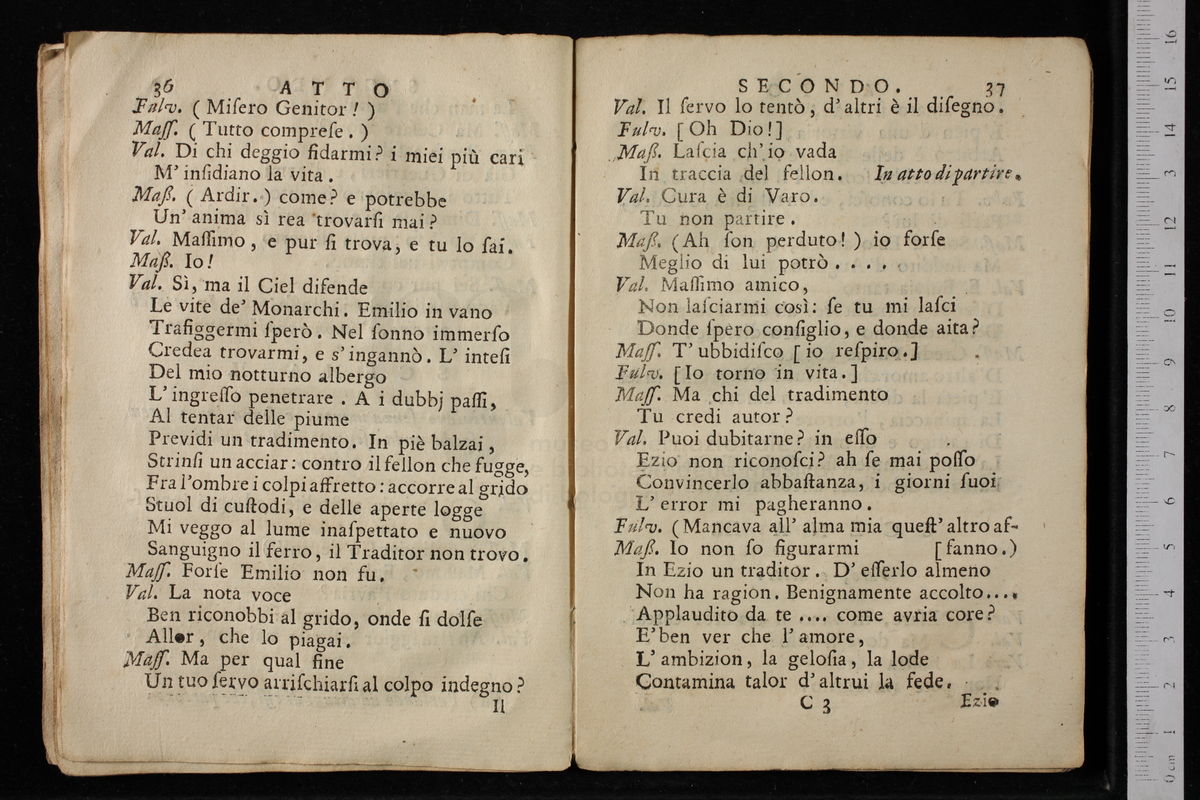 36 ATTO
Fulv. ( Miſero Genitor ! )
Maſſ. ( Tutto compreſe . )
Val. Di chi deggio fidarmi? i miei più cari
M' inſidiano la vita .
Maß. ( Ardir. ) come? e potrebbe
Un' anima sì rea trovarſi mai ?
Val. Maſſimo , e pur ſi trova, e tu lo ſai.
Maß. Io !
Val. Sì, ma il Ciel difende
Le vite de' Monarchi. Emilio in vano
Trafiggermi ſperò. Nel ſonno immerſo
Credea trovarmi, e s' ingannò. L' inteſi
Del mio notturno albergo
L' ingreſſo penetrare . A i dubbj paſſi,
Al tentar delle piume
Previdi un tradimento. In piè balzai ,
Strinſi un acciar : contro il fellon che fugge,
Fra l'ombre i colpi affretto : accorre al grido
Stuol di cuſtodi, e delle aperte logge
Mi veggo al lume inaſpettato e nuovo
Sanguigno il ferro, il Traditor non trovo.
Maſſ. Forſe Emilio non fu.
Val. La nota voce
Ben riconobbi al grido, onde ſi dolſe
Allor, che lo piagai.
Maſſ. Ma per qual fine
Un tuo ſervo arriſchiarſi al colpo indegno ?
Il
SECONDO. 37
Val. Il ſervo lo tentò, d' altri è il diſegno.
Fulv. [ Oh Dio! ]
Maß. Laſcia ch' io vada
In traccia del fellon. In atto di partire.
Val. Cura è di Varo.
Tu non partire .
Maß. (Ah ſon perduto! ) io forſe
Meglio di lui potrò . . . . .
Val. Maſſimo amico,
Non laſciarmi così: ſe tu mi laſci
Donde ſpero conſiglio, e donde aita?
Maſſ. T' ubbidiſco [ io reſpiro. ]
Fulv. [ Io torno in vita. ]
Maſſ. Ma chi del tradimento
Tu credi autor ?
Val. Puoi dubitarne? in eſſo
Ezio non riconoſci? ah ſe mai poſſo
Convincerlo abbaſtanza, i giorni ſuoi
L' error mi pagheranno.
Fulv. (Mancava all' alma mia queſt' altro af-
Maß. Io non ſo figurarmi [ fanno. )
In Ezio un traditor. D' eſſerlo almeno
Non ha ragion. Benignamente accolto....
Applaudito da te .... come avria core?
E' ben ver che l' amore,
L' ambizion, la geloſia, la lode
Contamina talor d' altrui la fede.
C 3 Ezio
0 cm 1 2 3 4 5 6 7 8 9 10 11 12 13 14 15 16